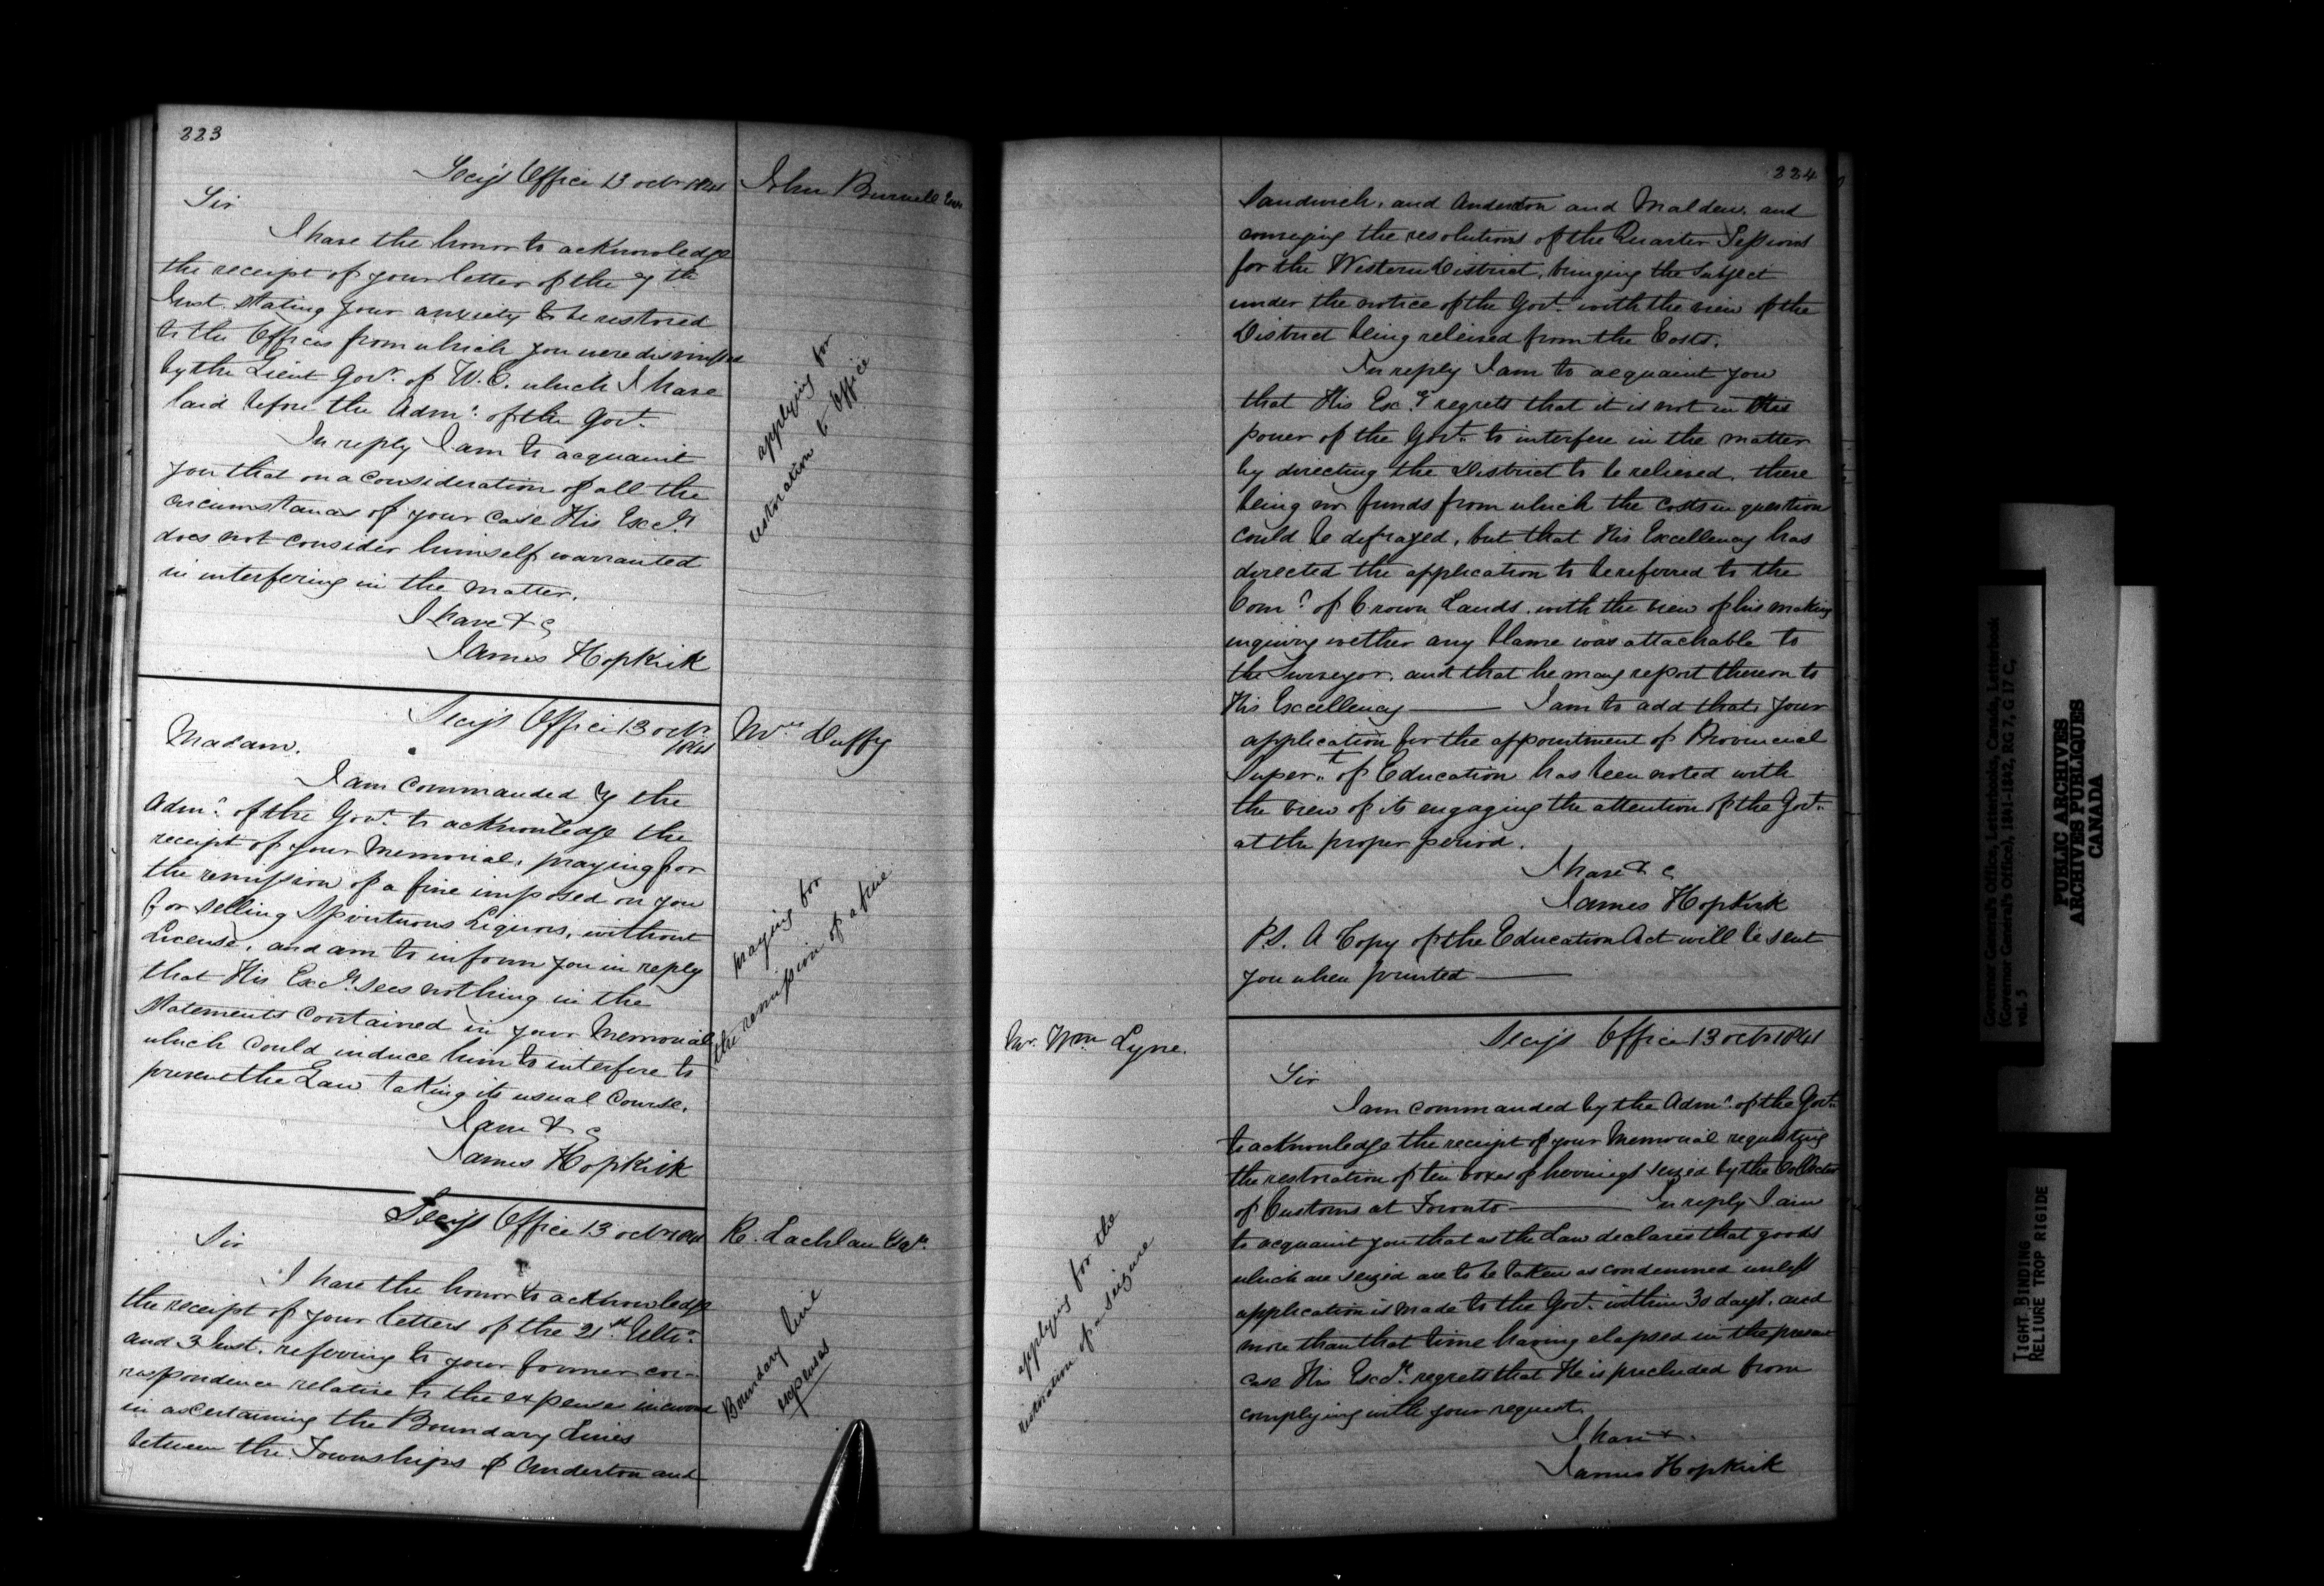 223
Secy's Office 13 octr 1841
John Burwell Esqr
Sir
I have the honor to acknowledge
the receipt of your letter of the 7th
Inst. stating your anxiety to be restored
to the Offices from which you were dismissed
by the Lieut Govr. of U.C. which I have
laid before the Admr. of the Govt.
In reply I am to acquaint
you that on a consideration of all the
circumstances of your case His Excy.
does not consider himself warranted
in interfering in the matter.
I have &c
James Hopkirk
applying for
restoration to office
Secy's Office 13 octr
1841
Mrs Duffy
Madam.
I am commanded by the
Admr. of the Govt. to acknowledge the
receipt of your Memorial, praying for
the remission of a fine imposed on you
for selling Spirituous Liquors, without
License, and am to inform you in reply
that His Excy. sees nothing in the
Statements contained in your Memorial
which could induce him to interfere to
prevent the Law taking its usual Course.
I am &c
James Hopkirk
praying for
the remission of a fine
Secy's Office 13 octr 1841
R. Lachlan Esqr.
Sir
I have the honor to acknowledge
the receipt of your letters of the 21st Ulto.
and 3 Inst. referring to your former cor-
respondence relative to the expense incurred
in ascertaining the Boundary Lines
between the Townships of Anderton and
Boundary line
expenses
224
Sandwich, and Anderton and Malden, and
conveying the resolutions of the Quarter Sessions
for the Western District, bringing the subject
under the notice of the Govt. with the view of the
District being releived from the Costs.
In reply I am to acquaint you
that His Excy regrets that it is not in the
power of the Govt. to interfere in the matter
by directing the District to be relieved, there
being no funds from which the costs in question
could be defrayed, but that His Excellency has
directed the application to be referred to the
Comr. of Crown Lands, with the view of his making
inquiry wether any blame was attachable to
the Surveyor, and that he may report thereon to
His Excellency — I am to add that your
application for the appointment of Provincial
Supert. of Education has been noted with
the view of its engaging the attention of the Govt.
at the proper period.
I have &c
James Hopkirk
P.S. A Copy of the Education Act will be sent
you when printed —
Secy's Office 13 octr 1841
Mr. Wm Lyne.
Sir
I am commanded by the Admr. of the Govt.
to acknowledge the receipt of your Memorial requesting
the restoration of ten boxes of herrings seized by the Collector
of Customs at Toronto — In reply I am
to acquaint you that as the Law declares that goods
which are seized are to be taken as condemned unless
application is made to the Govt. within 30 days, and
more than that time having elapsed in the present
case His Excy. regrets that He is precluded from
complying with your request.
I have &
James Hopkirk
applying for the
restoration of a seizure
Governor General's Office, Letterbooks, Canada, Letterbook
(Governor General's Office), 1841-1842, RG 7, G 17 C,
vol. 5
PUBLIC ARCHIVES
ARCHIVES PUBLIQUES
CANADA
TIGHT BINDING
RELIURE TROP RIGIDE